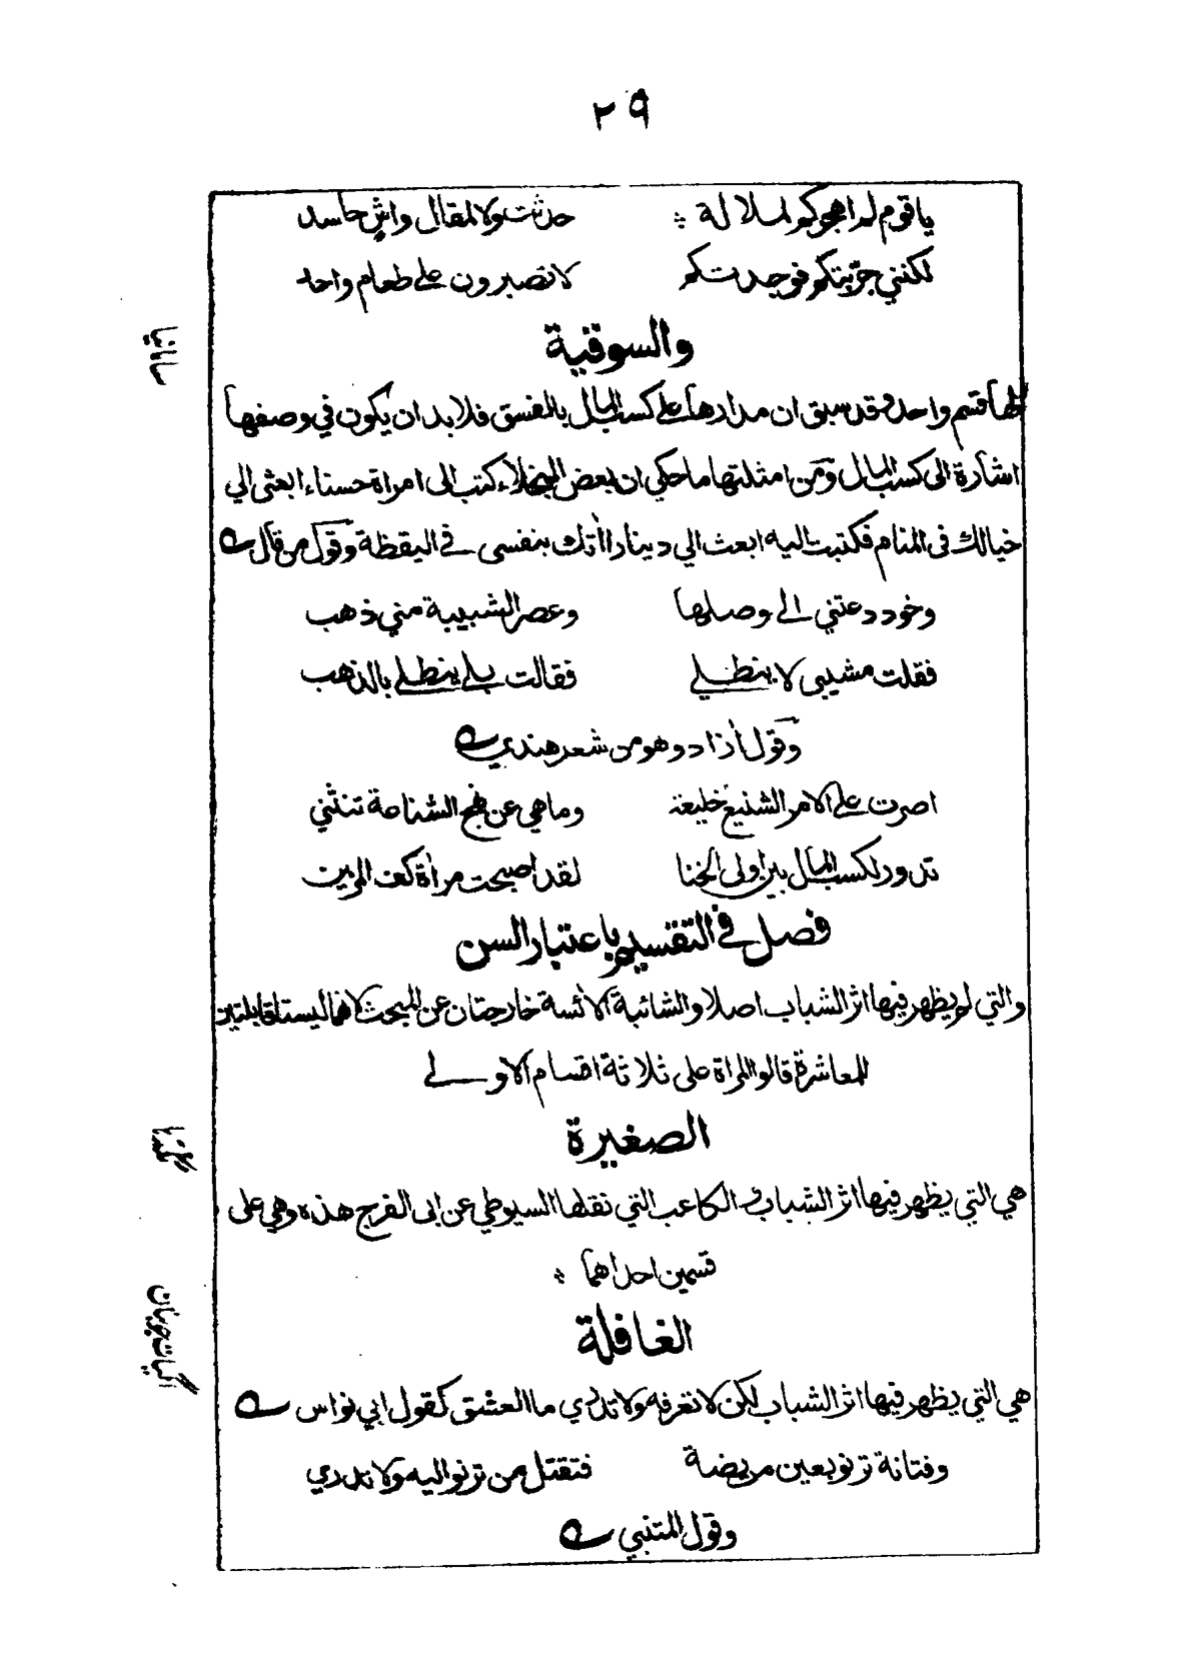 ٢٩
ياقوم لم اهجركم لملالة ؞ حدثت ولا لمقال واش حاسد
لكنني جربتكم فوجدتكم لا تصبرون على طعام واحد
والسوقية
سامانيا
لها قسم واحد وقد سبق ان مدارها على كسب المال بالفسق فلا بد ان يكون في وصفها
اشارة الى كسب المال ومن امثلتها ما حكي ان بعض البخلاء كتب الى امراة حسناء ابعثي الي
خيالك في المنام فكتبت اليه ابعث الي دينارا أتك بنفسي في اليقظة وقول من قال
وخود دعتني الى وصلها وعصر الشبيبة مني ذهب
فقلت مشيبي لا ينطلي فقالت بلى ينطلي بالذهب
وقول أزاد وهو من شعر هندي
اصرت على الامر الشنيع خليعة وما هي عن نهج الشناعة تنثني
تدور لكسب المال بين اولى الخنا لقد اصبحت مرأة كف المزين
فصل في التقسيم باعتبار السن
والتي لم يظهر فيها اثر الشباب اصلا والشائبة الأئسة خارجتان عن المبحث لانهما ليستا قابلتين
للمعاشرة قالوا المراة على ثلاثة اقسام الاولى
الصغيرة
مگدها
هي التي يظهر فيها اثر الشباب والكاعب التي نقلها السيوطي عن ابي الفرج هذه وهي على
قسمين احداهما ؞
الغافلة
هي التي يظهر فيها اثر الشباب لكن لا تعرفه ولا تدري ما العشق كقول ابي نواس
وفتانة ترنو بعين مريضة فتقتل من ترنو اليه ولا تدري
وقول المتنبي